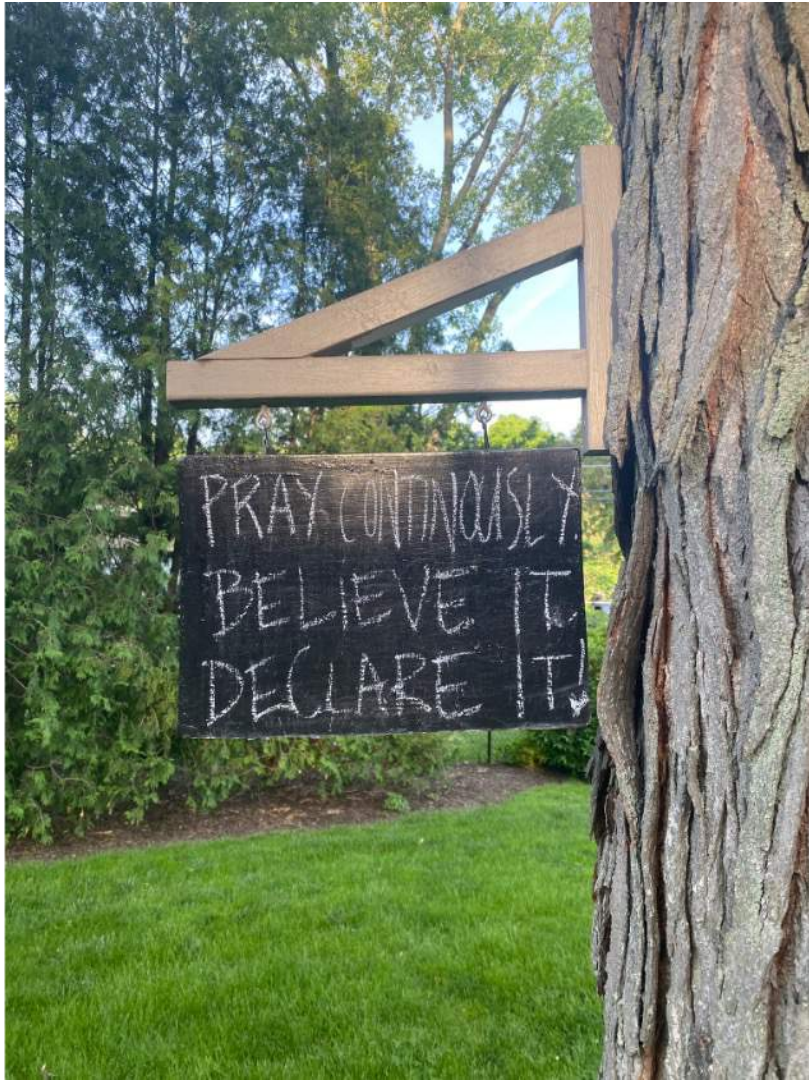 PRAY CONTINOUSLY.
BELIEVE IT.
DECLARE IT!